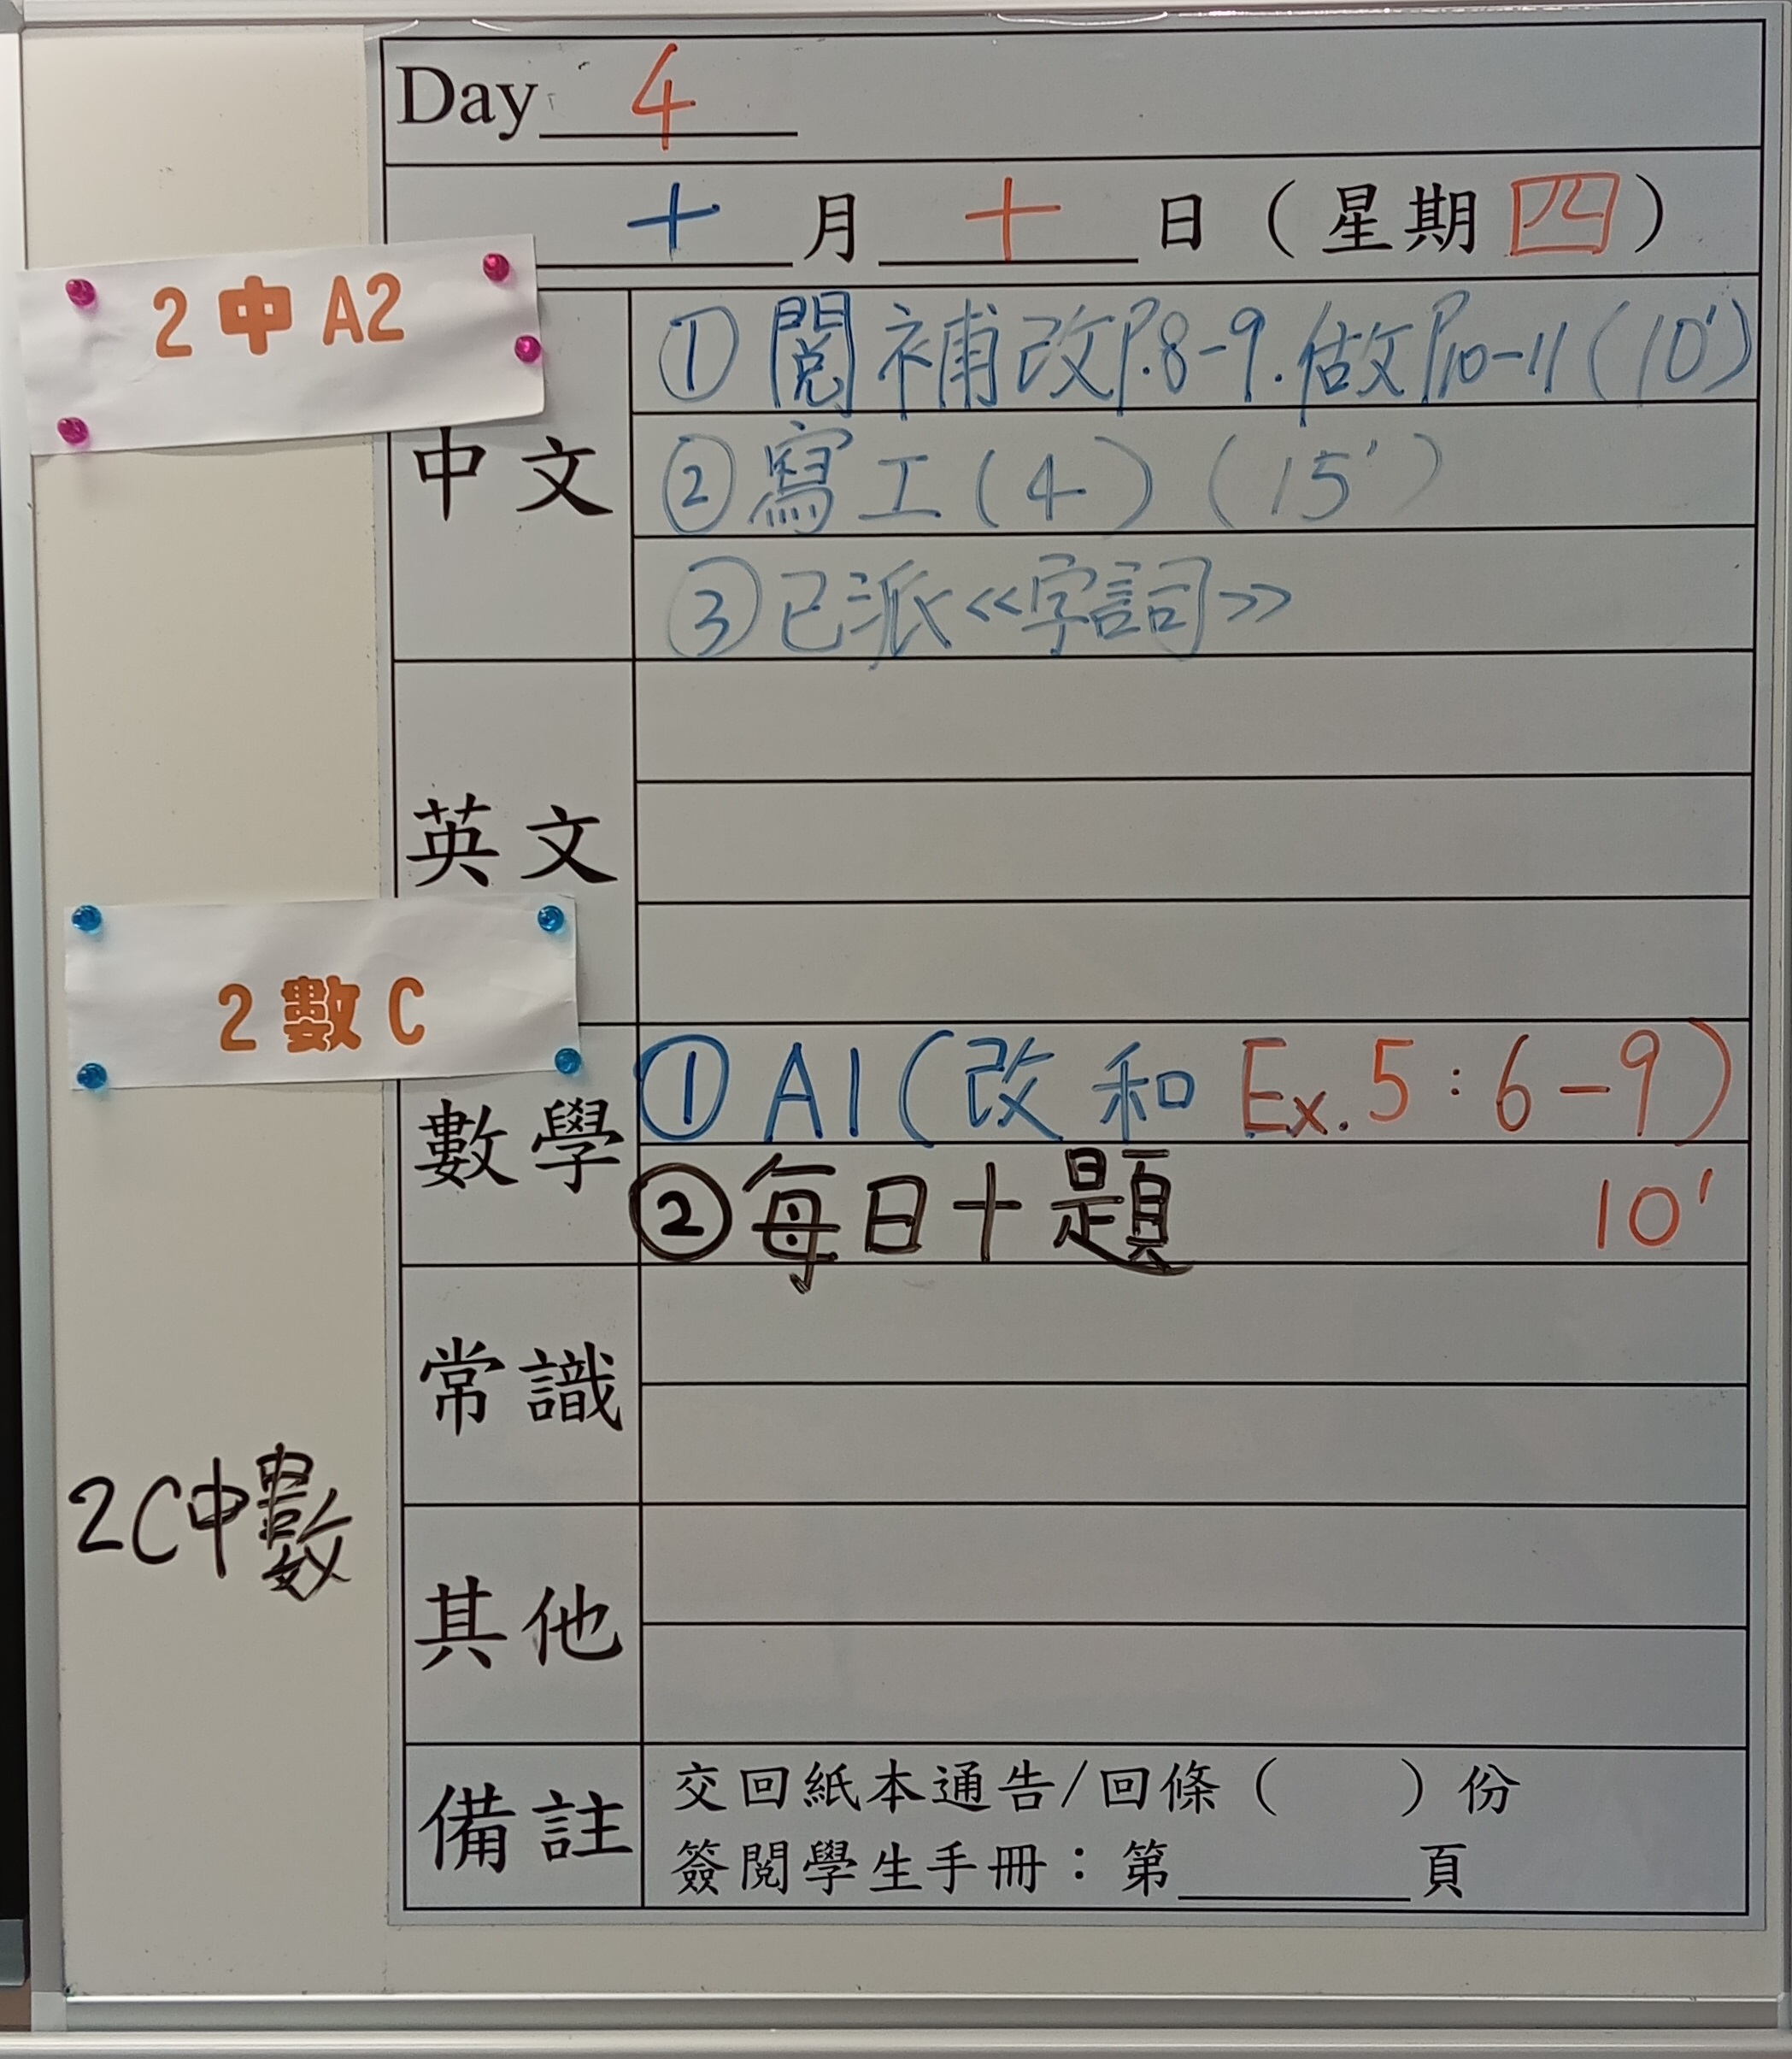 Day 4
十 月 十 日（星期四）
2 中 A2
中文
① 閱補改P.8-9.做P10-11(10')
② 寫工(4)(15')
③ 已派<<字詞>>
英文
2 數 C
數學
① A1(改和 Ex.5:6-9)
② 每日十題 10'
常識
2C中數
其他
備註
交回紙本通告/回條（ ）份
簽閱學生手冊：第 頁